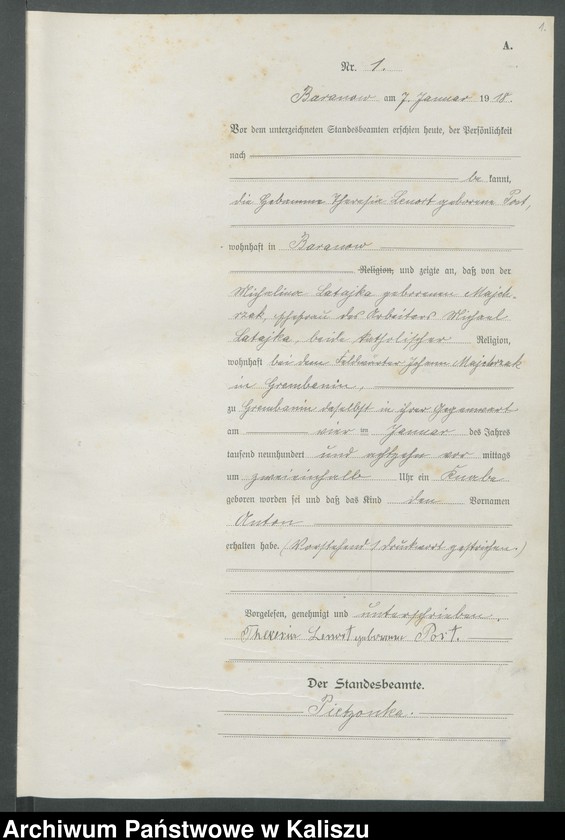 1.
A.
Nr. 1.
Baranow am 7. Januar 1918.
Vor dem unterzeichneten Standesbeamten erschien heute, der Persönlichkeit
nach
be kannt,
die Hebamme Theresia Lenort geborene Port,
wohnhaft in Baranow
Religion, und zeigte an, daß von der
Michalina Latajka geborenen Majch-
rzak, Ehefrau des Arbeiters Michael
Latajka, beide katholischer Religion,
wohnhaft bei dem Feldwärter Johann Majchrzak
in Grembanin,
zu Grembanin daselbst in ihrer Gegenwart
am vier ten Januar des Jahres
tausend neunhundert und achtzehn vor mittags
um zweieinhalb Uhr ein Knabe
geboren worden sei und daß das Kind den Vornamen
Anton
erhalten habe. (Vorstehend 1 Druckwort gestrichen.)
Vorgelesen, genehmigt und unterschrieben.
Theresia Lenort geborene Port.
Der Standesbeamte.
Pietzonka.
Archiwum Państwowe w Kaliszu